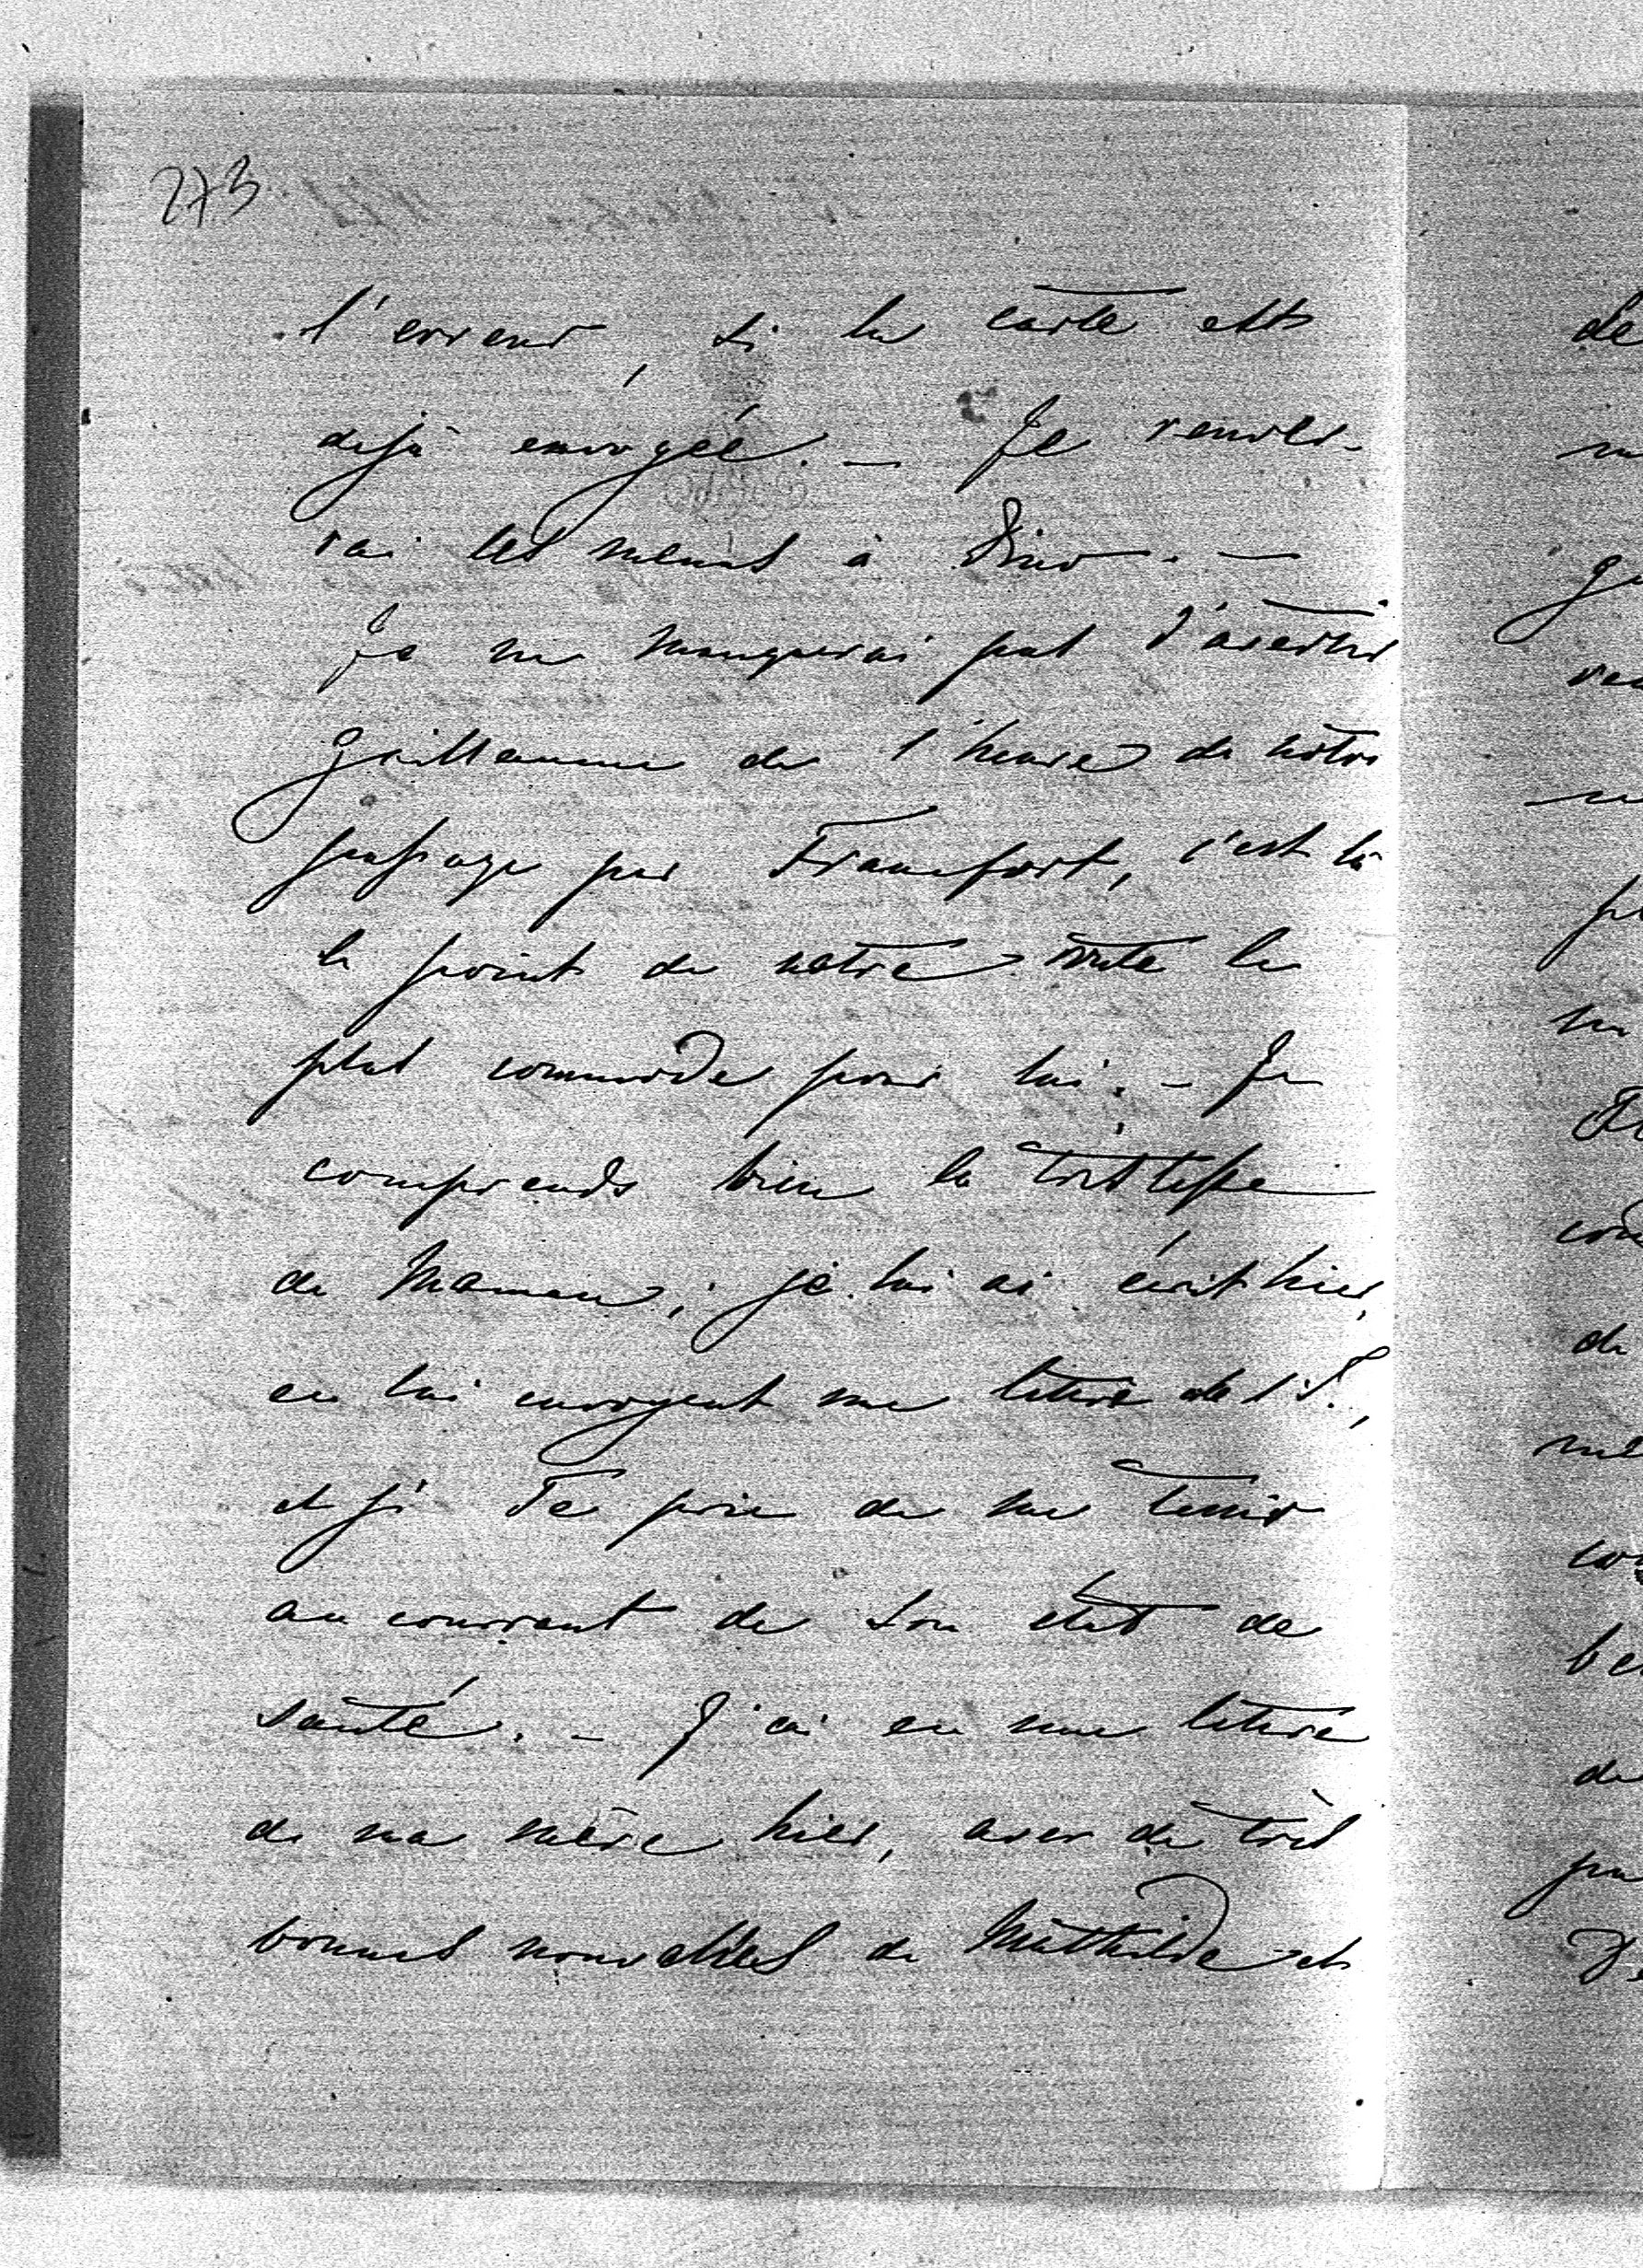 273
l'erreur, si la carte est
dejà envoyée. — Je rendes-
rai les menus à Dino. —
Je ne manquerai pas d'avertir
Guillaume de l'heure de nôtre
passage par Francfort, c'est là
le point de notre route le
plus commode pour lui. — Je
comprends bien la tristesse
de Maman; je lui ai écrit hier,
en lui envoyent une lettre de l'I.,
et je Te prie de me tenir
au courrent de son état de
santé. — J'ai eu une lettre
de ma mère hier, avec de très
bonnes nouvelles de Mathilde et